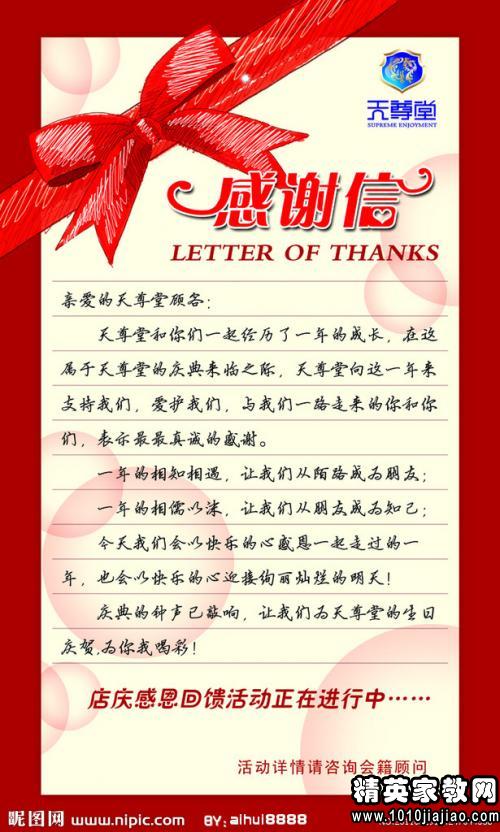 天尊堂
SUPREME ENJOYMENT
感谢信
LETTER OF THANKS
亲爱的天尊堂顾客：
天尊堂和你们一起经历了一年的成长，在这
属于天尊堂的庆典来临之际，天尊堂向这一年来
支持我们，爱护我们，与我们一路走来的你和你
们，表示最最真诚的感谢。
一年的相知相遇，让我们从陌路成为朋友；
一年的相儒以沫，让我们从朋友成为知己；
今天我们会以快乐的心感恩一起走过的一
年，也会以快乐的心迎接绚丽灿烂的明天！
庆典的钟声已敲响，让我们为天尊堂的生日
庆贺,为你我喝彩！
店庆感恩回馈活动正在进行中……
活动详情请咨询会籍顾问
昵图网 www.nipic.com BY: aihui8888
精英家教网
www.1010jiajiao.com